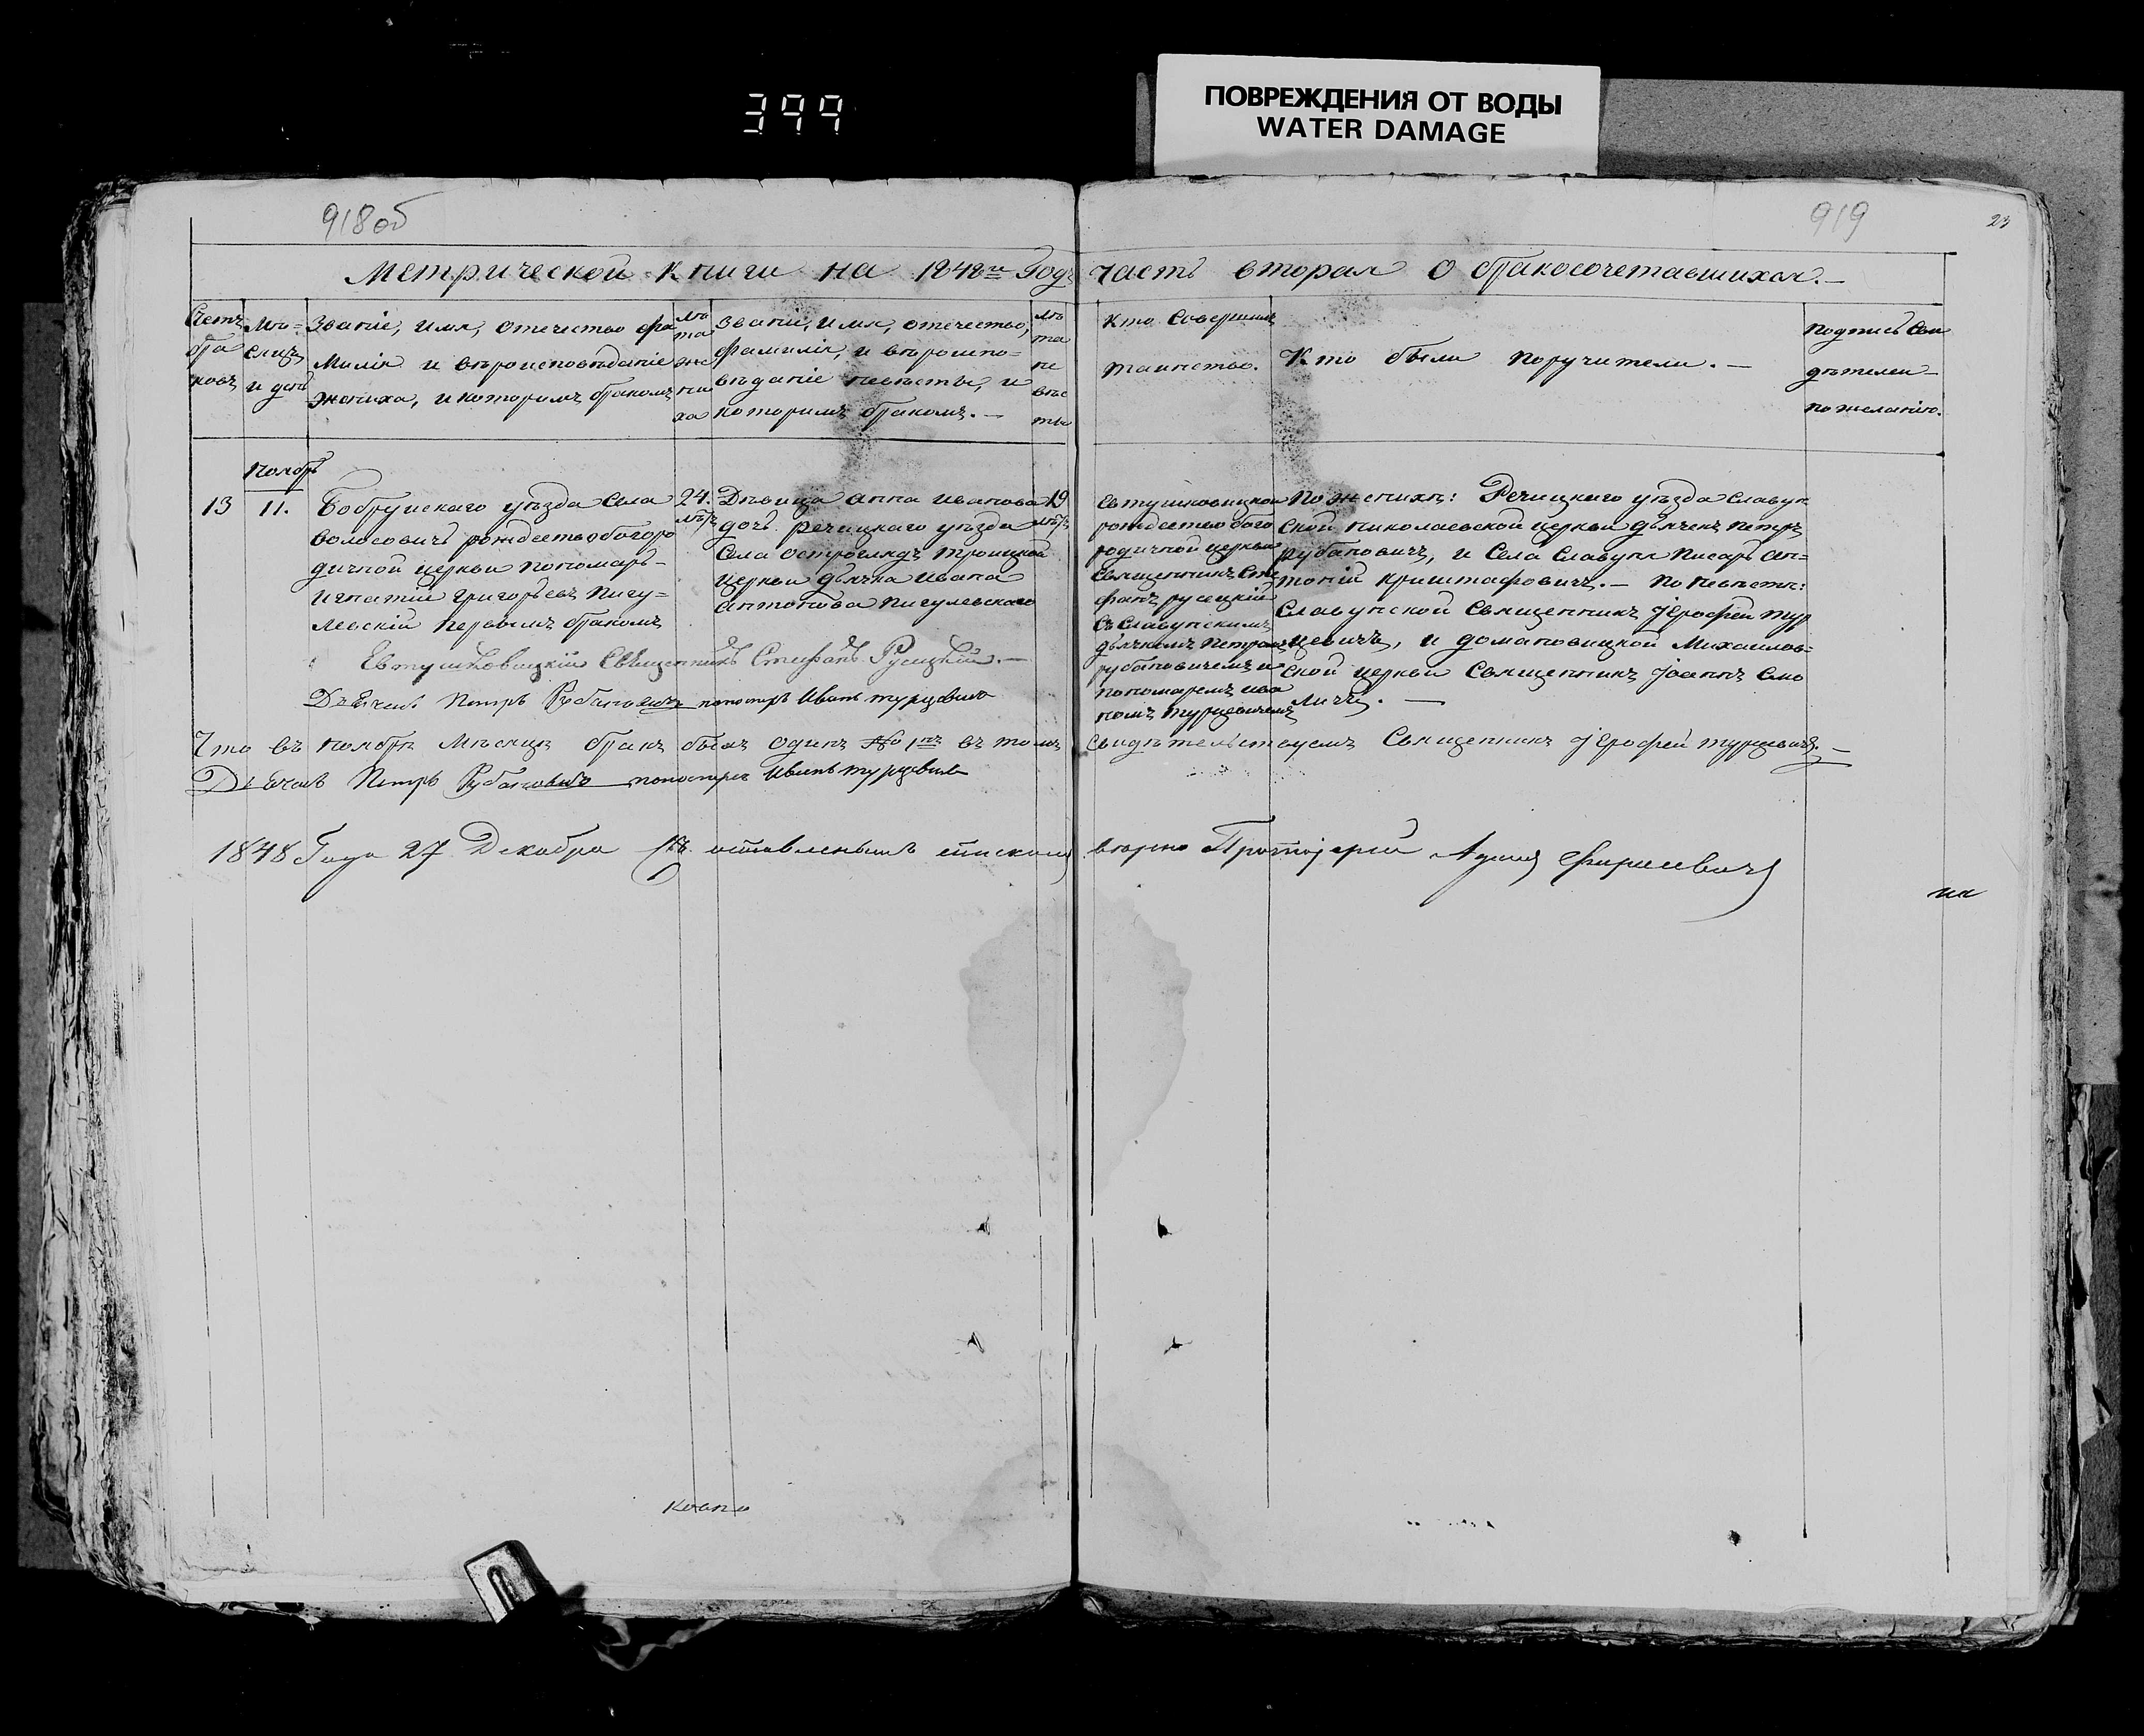 399
ПОВРЕЖДЕНИЯ ОТ ВОДЫ
WATER DAMAGE
918об
919
23
Метрической книги на 1848й Годъ часть вторая о бракосочетавшихся.—
Счетъ
бра
ковъ
Мѣ=
сяцъ
и день
Званіе, имя, отечество фа
милія и вѣроисповѣданіе
жениха, и которымъ бракомъ
Лѣ
та
же
ни
ха
Званіе, имя, отечество,
фамилія, и вѣроиспо=
вѣданіе невѣсты, и
которымъ бракомъ.—
Лѣ
та
не
вѣс
ты
Кто совершалъ
таинство.
Кто были поручители.—
подпись сви
дѣтелей
по желанію.
ноябрь
13
11.
Бобруйскаго уѣзда села
волосовичъ рождество богоро
дичной церкви пономарь
Игнатій григорьевъ пигу=
левскій первымъ бракомъ
24.
лѣтъ
Дѣвица анна иванова
дочь речицкаго уѣзда
села остроглядъ троицкой
церкви дьячка ивана
антонова пигулевскаго
19
лѣтъ
Евтушковицкой
рождество бого
родичной церкви
священникъ Сте
фанъ русецкій
съ славунскимъ
дьячкомъ петромъ
рубановичемъ и
пономаремъ ива
номъ турцевичемъ
По женихѣ: Речицкаго уѣзда славун
ской николаевской церкви дьячекъ петръ
рубановичъ, и села славуня писарь ан=
тоній криштафовичъ.— по невѣстѣ:
славунской священникъ Іерофей тур
цевичъ, и домановицкой Михаилов=
ской церкви священникъ Іоаннъ смо
личъ.—
Евтушковицкій Священникъ Стефанъ Русецкій.—
Дьячекъ Петръ Рубановичъ пономарь Иванъ турцевичъ
Что въ ноябрѣ мѣсяцѣ бракъ былъ одинъ № 1нъ въ томъ свидѣтельствуемъ Священникъ Іерофей турцевичъ.—
Дьячекъ Петръ Рубановичъ пономарь Иванъ турцевичъ
1848 Года 27 Декабря Протоіерей